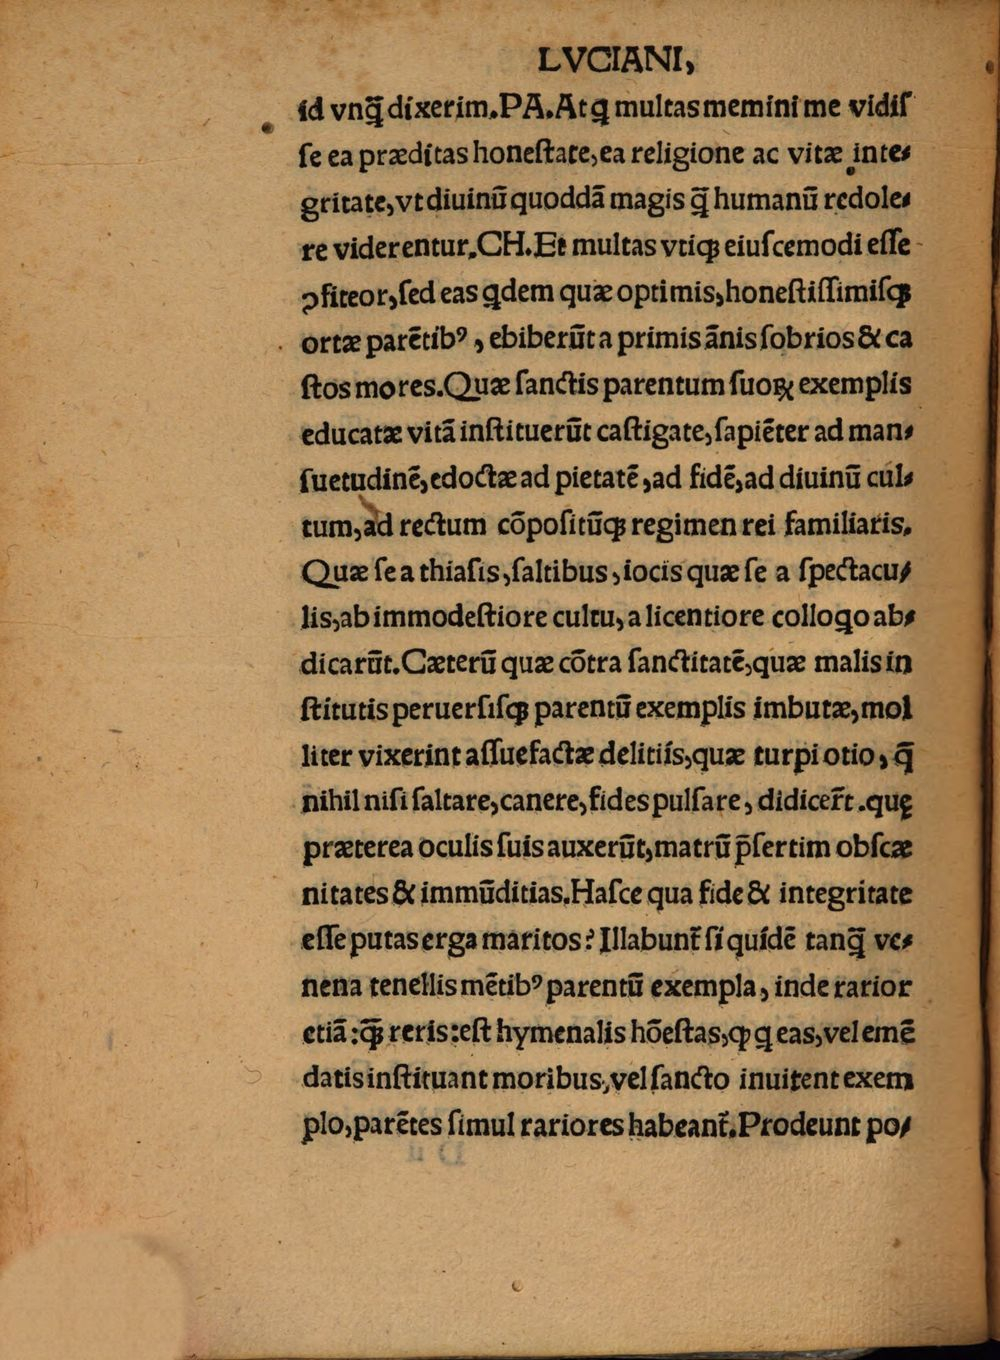 LVCIANI,
id vnq̃ dixerim.PA.Atꝗ multas memini me vidiſ
ſe ea præditas honeſtate,ea religione ac vitæ inte⸗
gritate,vt diuinũ quoddã magis q̃ humanũ redole⸗
re viderentur.CH.Et multas vtiqꝫ eiuſcemodi eſſe
ꝯfiteor,ſed eas ꝗdem quæ optimis,honeſtiſſimiſqꝫ
ortæ parẽtibꝰ, ebiberũt a primis ãnis ſobrios & ca
ſtos mores.Quæ ſanctis parentum ſuoꝝ exemplis
educatæ vitã inſtituerũt caſtigate,ſapiẽter ad man⸗
ſuetudinẽ,edoctæ ad pietatẽ,ad fidẽ,ad diuinũ cul⸗
tum,ad rectum cõpoſitũqꝫ regimen rei familiaris.
Quæ ſe a thiaſis,ſaltibus,iocis quæ ſe a ſpectacu⸗
lis,ab immodeſtiore cultu,a licentiore colloꝗo ab⸗
dicarũt.Cæterũ quæ cõtra ſanctitatẽ,quæ malis in
ſtitutis peruerſiſqꝫ parentũ exemplis imbutæ,mol
liter vixerint aſſuefactæ delitiis,quæ turpi otio, q̃
nihil niſi ſaltare,canere,fides pulſare, didicer̃t.quę
præterea oculis ſuis auxerũt,matrũ p̃ſertim obſcæ
nitates & immũditias.Haſce qua fide & integritate
eſſe putas erga maritos? Illabunt̃ ſi quidẽ tanq̃ ve⸗
nena tenellis mẽtibꝰ parentũ exempla, inde rarior
etiã:qꝫ̃ reris:eſt hymenalis hõeſtas,ꝙ ꝗ eas,vel emẽ
datis inſtituant moribus,vel ſancto inuitent exem
plo,parẽtes ſimul rariores habeant̃.Prodeunt po⸗